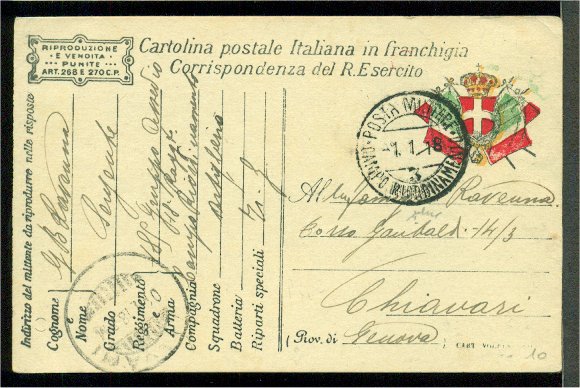 RIPRODUZIONE
E VENDITA
PUNITE
ART. 268 E 270 C.P.
Cartolina postale Italiana in franchigia
Corrispondenza del R. Esercito
POSTA MILITARE
1.1.18
3
Alla fam Ravenna
Corso Garibaldi 14/3
Chiavari
(Prov. di Genova)
10
Indirizzo del mittente da riprodurre nelle risposte
Cognome G B Ravenna
e
Nome
Grado Sergente
Reggimento Gruppo
e
Arma
Compagnia
Squadrone
Batteria Artiglieria
Riparti speciali